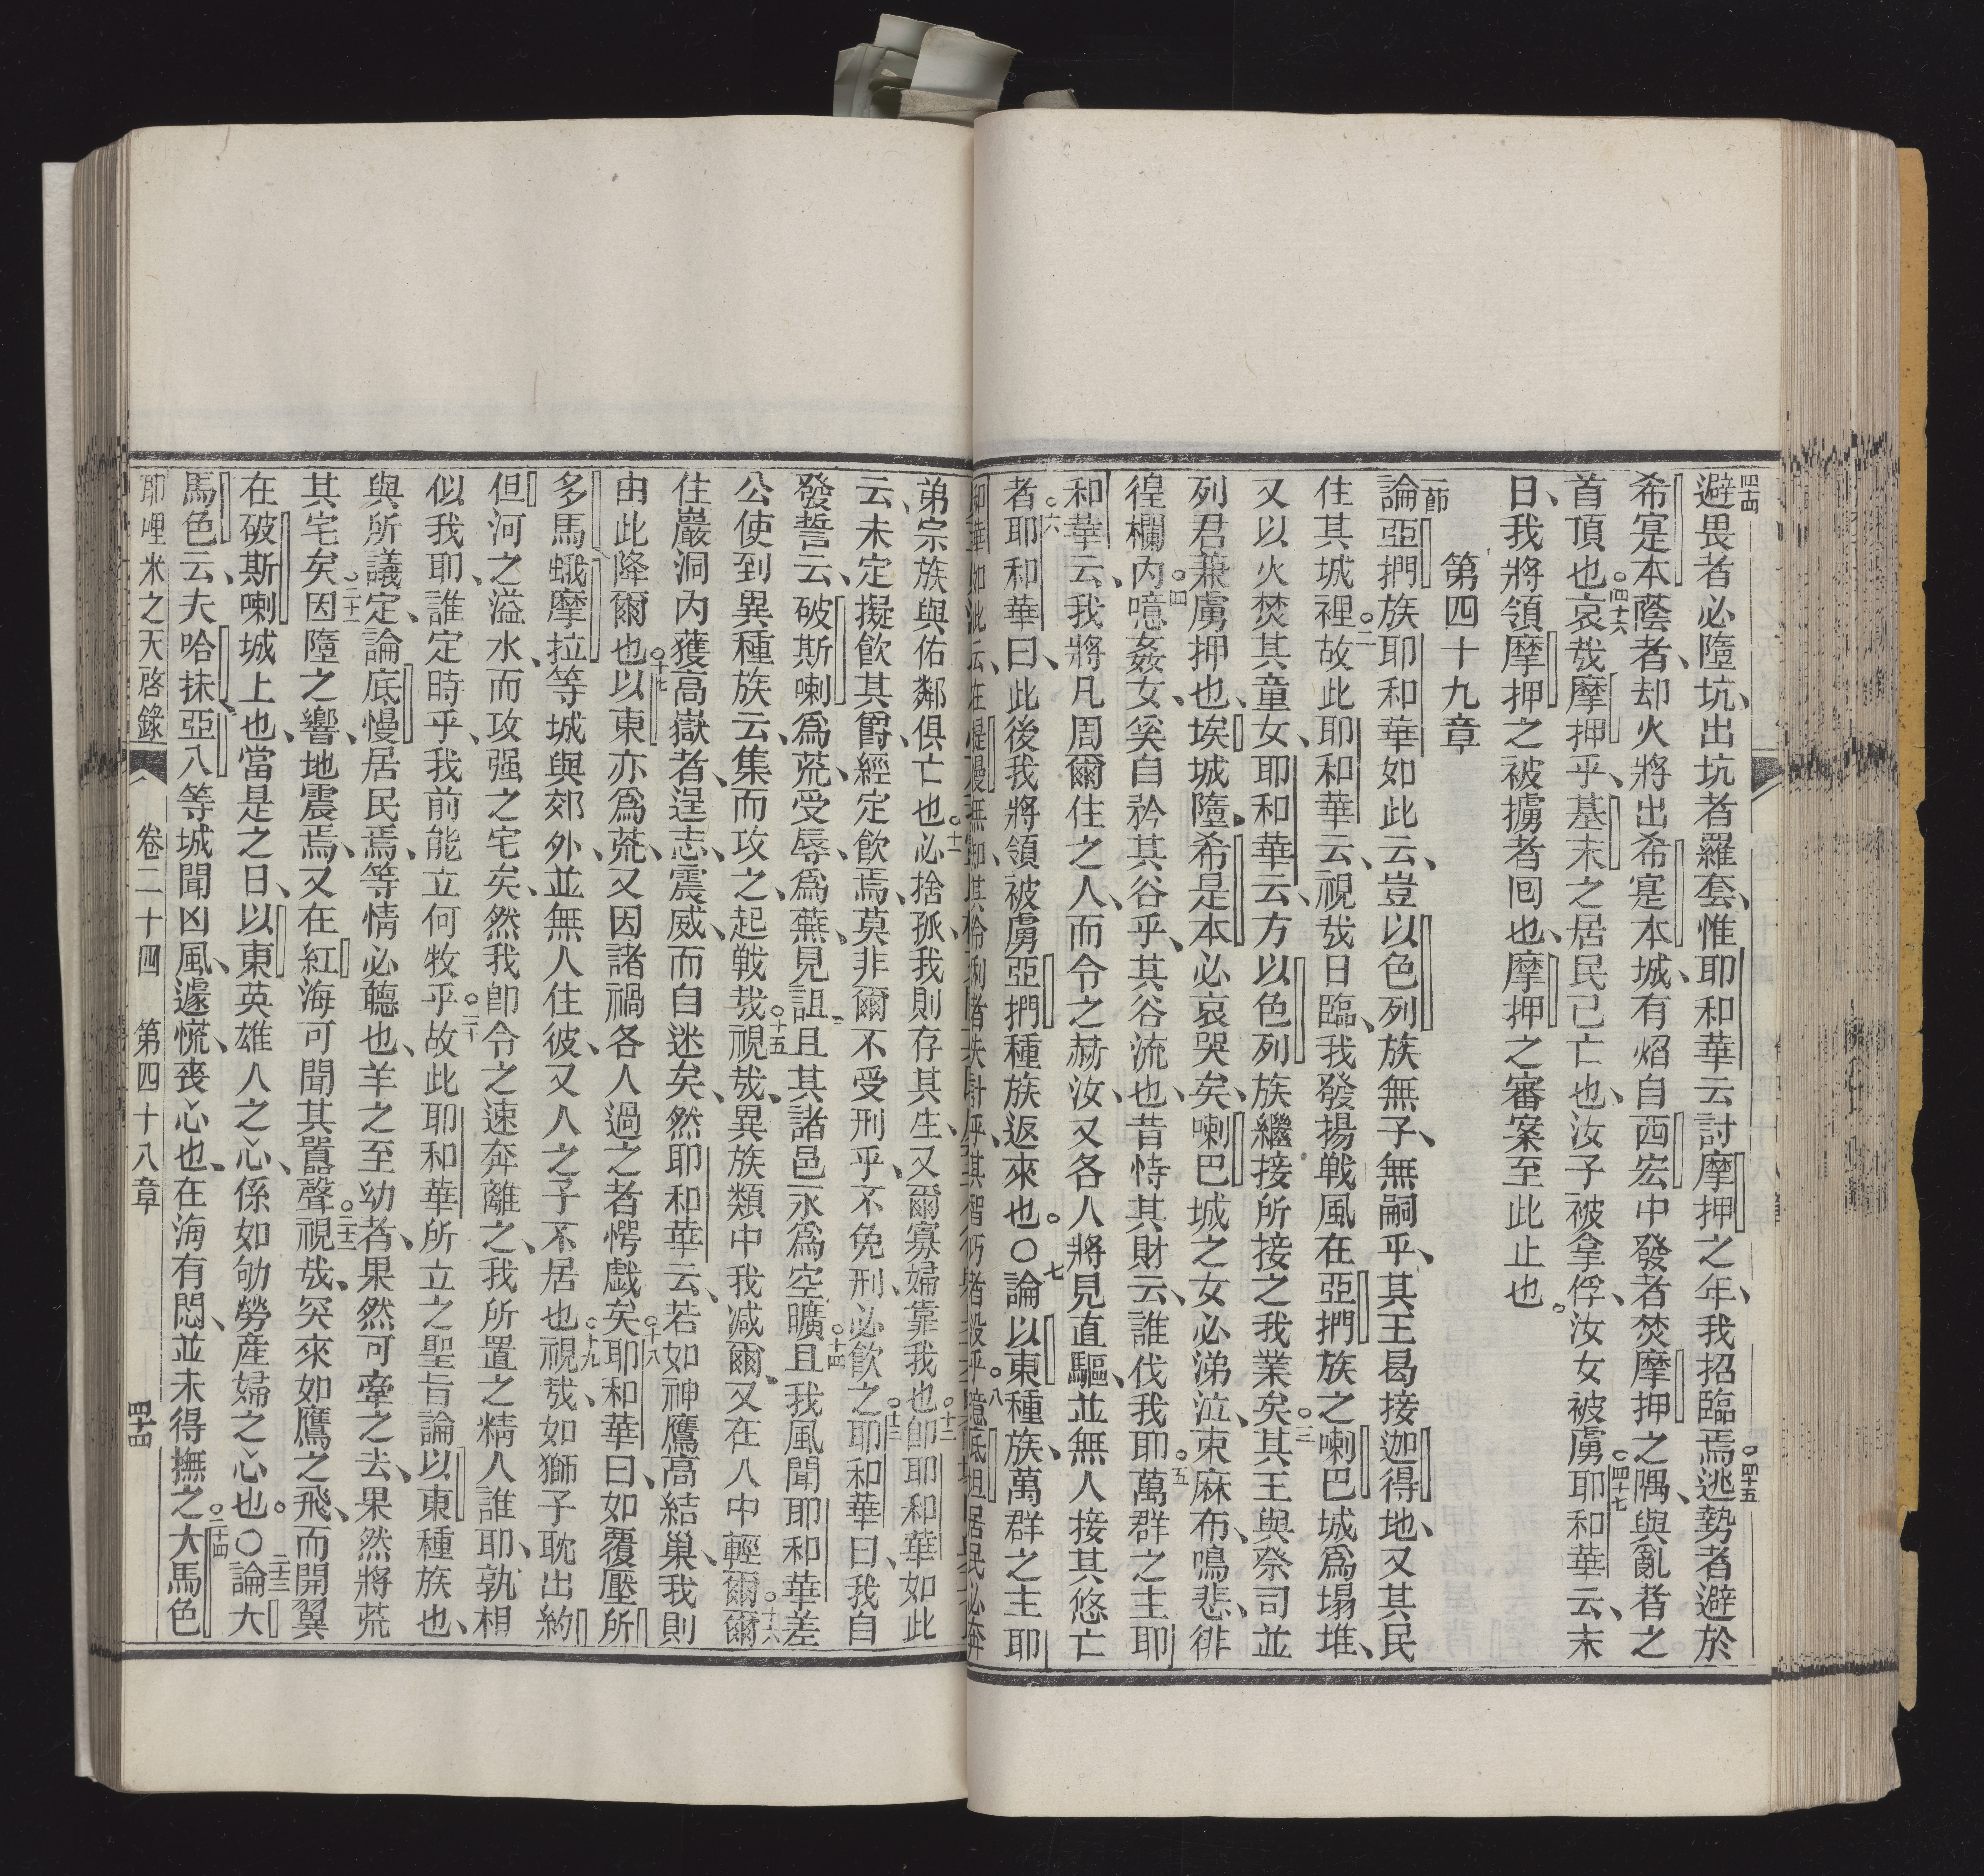 四十四
避畏者必墮坑、出坑者羅套、惟耶和華云、討摩押之年、我招臨焉。四十五逃勢者避於
希寔本蔭者、却火將出希寔本城、有焰自西宏中發者、焚摩押之隅、與亂者之
首頂也。四十六哀哉摩押乎、基末之居民已亡也、汝子被拿俘、汝女被虜。四十七耶和華云、末
日、我將領摩押之被擄者囘也、摩押之審案至此止也。
第四十九章
一節
論亞捫族、耶和華如此云、豈以色列族無子、無嗣乎、其王曷接迦得地、又其民
住其城裡。二故此耶和華云、視哉日臨、我發揚戰風在亞捫族之喇巴城爲塌堆、
又以火焚其童女、耶和華云、方以色列族繼接所接之我業矣。三其王與祭司並
列君兼虜押也、埃城墮、希是本必哀哭矣、喇巴城之女必涕泣、束麻布、鳴悲、徘
徨欄內。四噫姦女、奚自矜其谷乎、其谷流也、昔恃其財云、誰伐我耶。五萬群之主耶
和華云、我將凡周爾住之人、而令之赫汝、又各人將見直驅、並無人接其悠亡
者。六耶和華曰、此後我將領被虜亞捫種族返來也。〇七論以東種族、萬群之主耶
和華如此云、在提慢無知、其伶俐者失計乎、其智朽乎。八噫底坦居民必奔
弟宗族與佑鄰俱亡也。十一必捨孤、我則存其生、又爾寡婦靠我也。十二卽耶和華如此
云、未定擬飲其爵、經定飲焉、莫非爾不受刑乎、不免刑、必飲之。十三耶和華曰、我自
發誓云、破斯喇爲荒、受辱、爲蕪、見詛、且其諸邑永爲空曠。十四且我風聞耶和華差
公使到異種族云、集而攻之、起戰哉。十五視哉、異族類中我减爾、又在人中輕爾。十六爾
住巖洞內獲高嶽者、逞志、震威、而自迷矣、然耶和華云、若如神鷹高結巢、我則
由此降爾也。十七以東亦爲荒、又因諸禍各人過之者愕戲矣。十八耶和華曰、如覆壓所
多馬蛾摩拉等城與郊外、並無人住彼、又人之子不居也。十九視哉、如獅子耽出約
但河之溢水、而攻强之宅矣、然我卽令之速奔離之、我所置之精人誰耶、孰相
似我耶、誰定時乎、我前能立何牧乎。二十故此耶和華所立之聖旨論以東種族也、
與所議定、論底慢居民焉、等情必聽也、羊之至幼者、果然可牽之去、果然將荒
其宅矣。二十一因墮之響、地震焉、又在紅海可聞其囂聲。二十二視哉、突來如鷹之飛、而開翼
在破斯喇城上也、當是之日、以東英雄人之心、係如劬勞產婦之心也。〇二十三論大
馬色云、夫哈抹亞八等城聞凶風、遽慌喪心也、在海有悶、並未得撫之。二十四大馬色
耶哩米之天啓錄 卷二十四 第四十八章 四十四